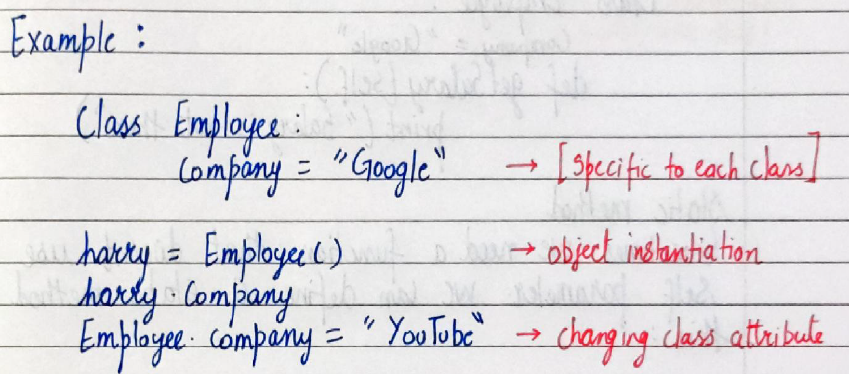 Example :
Class Employee :
Company = "Google" → [Specific to each class]
harry = Employee() → object instantiation
harry.Company
Employee.company = "YouTube" → changing class attribute